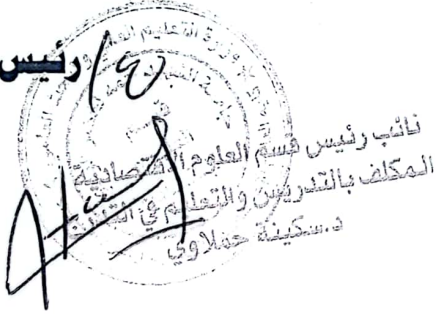 ع/ رئيس
نائب رئيس قسم العلوم الاقتصادية
المكلف بالتدريس والتعليم في التدرج
د.سكينة حملاوي